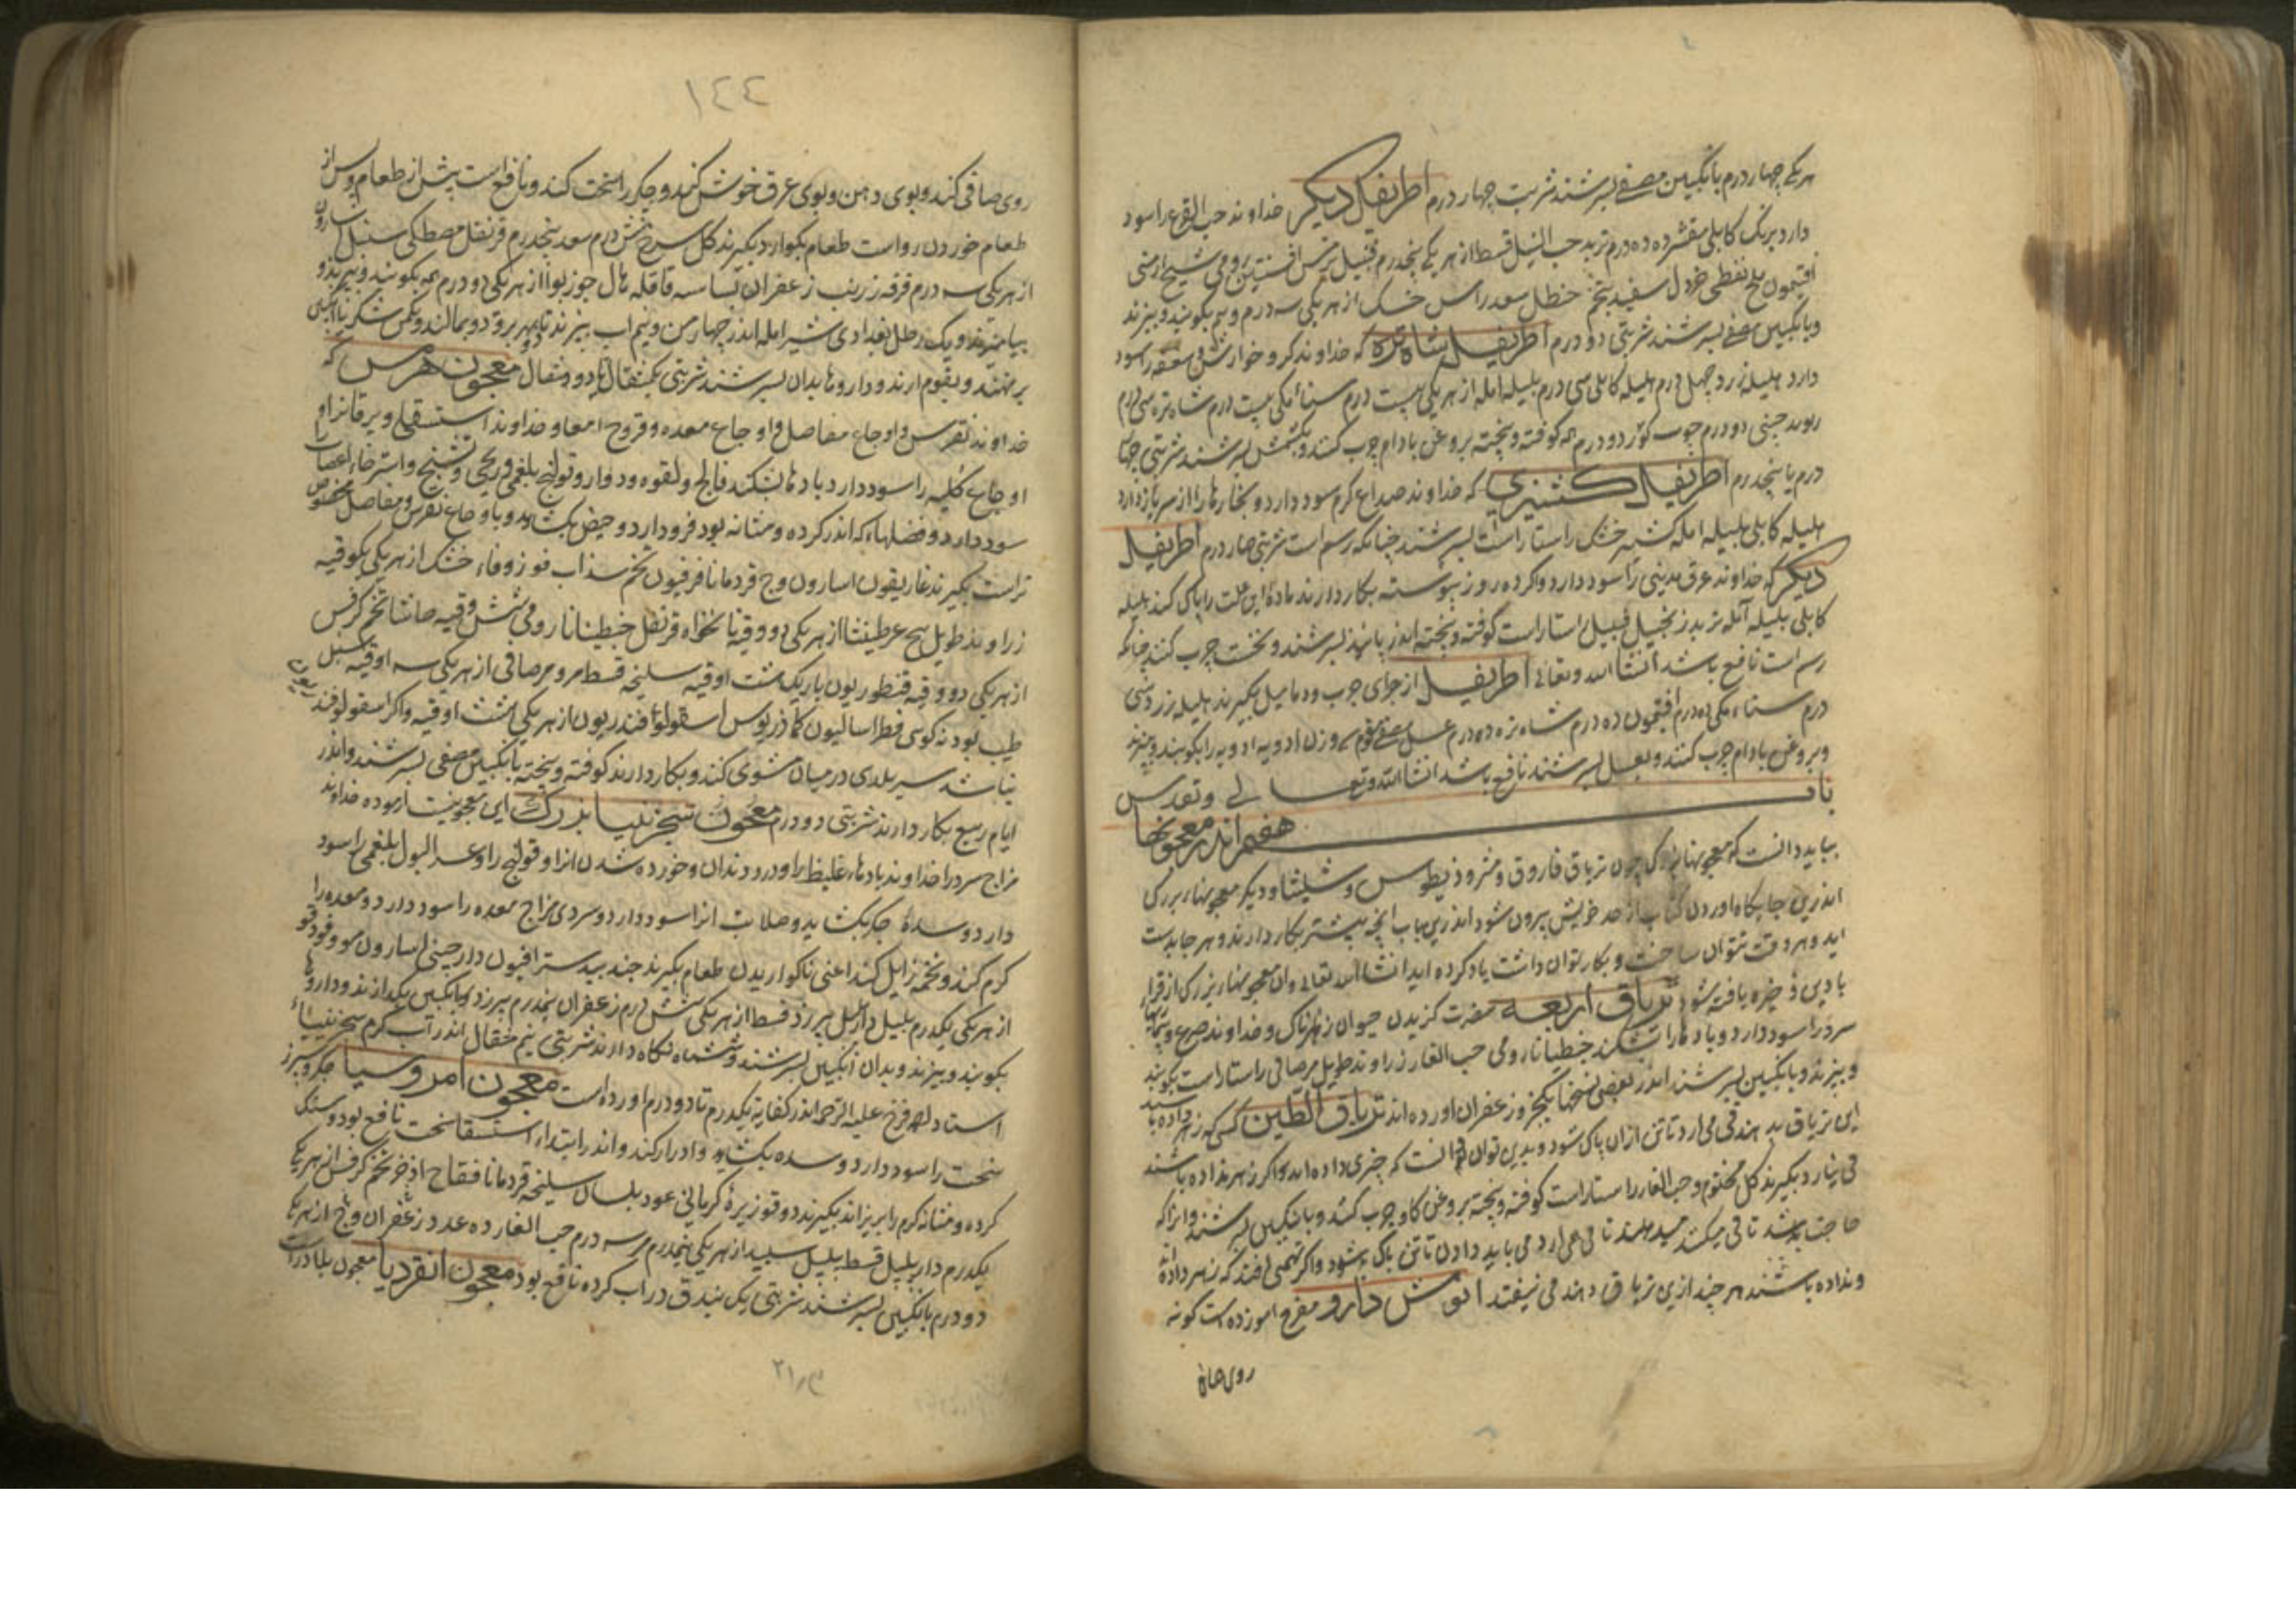 هر یکی چهار درم بانگبین مصفی بسرشند شربت چهار درم اطریفل دیکر خداوند حب القرع را سود
دارد برنک کابلی مقشر ده درم تربد حب النیل قسط از هر یکی پنجدرم قنبیل ترمس افسنتین رومی شیح ارمنی
افتیمون ملح نفطی خردل سفید حنظل سعد راس خشک از هر یکی سه درم و نیم بکوبند و ببیزند
و بانگبین مصفی بسرشند شربتی دو درم اطریفل شاه تره که خداوند کر و خوارش و سعفه را سود
دارد هلیله زرد چهل درم هلیله کابلی سی درم بلیله امله از هر یکی بیست درم سناء مکی بیست درم شاه تره سی درم
ریوند چینی دو درم چوب کوز دو درم همه کوفته و پخته بروغن بادام چرب کنند و بکشمش بسرشند شربتی چهار
درم یا پنجدرم اطریفل کشنیزی که خداوند صداع کرم سود دارد و بخارها را از سر بازدارد
هلیله کابلی بلیله امله کشنیز خشک راستا راست بسرشند چنانکه رسم است شربتی چهار درم اطریفل
دیکر که خداوند عرق مدینی را سود دارد و اکر ده روز پیوسته بکار دارند ماده این علت را پاک کند هلیله
کابلی بلیله آمله تربد زنجبیل قنبیل راستا راست کوفته و پخته اندر پانید بسرشند و نخست چرب کنند چنانکه
رسم است نافع باشد انشا الله و تعالی اطریفل از برای جرب و دمامیل بکیرند هلیله زرد سی
درم سناء مکی ده درم افتیمون ده درم شاه تره ده درم عسل مصفی مقوم سه وزن ادویه ادویه را بکوبند و ببیزند
و بروغن بادام چرب کنند و بعسل بسرشند نافع باشد انشا الله و تعالی و تقدس
باب
هفتم اندر معجونها
بباید دانست که معجونهاء بزرک چون تریاق فاروق و مثرودیطوس و شلیثا و دیکر معجونهاء بزرک
اندرین جایکاه اوردن کتاب از حد خویش بیرون شود اندرین باب انچه بیشتر بکار دارند و هر جا بدست
اید و هر وقت بتوان ساخت و بکار توان داشت یاد کرده اید انشا الله تعالی و ان معجونهاء بزرک از قرا
بادین ذخیره یافته شود تریاق اربعه مضرت کزیدن حیوان زهرناک و خداوند صرع و
سرد را سود دارد و بادها را بشکند جنطیانا رومی حب الغار زراوند طویل مر صافی راستا راست بکوبند
و ببیزند و بانگبین بسرشند اندر بعضی نسختها و زعفران اورده اند تریاق الطین کسی که زهر داده باشند
این تریاق بدهند قی می ارد تا تن از ان پاک شود و بدین توان دانست که چیزی داده اند و اکر زهر نداده باشند
قی نیارد بکیرند کل مختوم و حب الغار راستا راست کوفته و پخته بروغن کاو چرب کنند و بانگبین بسرشند و انرا که
حاجت باشد تا قی میکند میدهند تا قی می ارد می باید دادن تا تن پاک شود و اکر تهمتی افتد که زهر داده
و نداده باشند هر چند ازین تریاق دهند قی نیفتد انوش دارو مفرح اموزده است کونه
روی صاف
١٤٤
روی صافی کند و بوی دهن و بوی عرق خوش کند و جکر را سخت کند و نافع است پیش از طعام و پس از
طعام خوردن رواست طعام بکوارد بکیرند کل سرخ شش درم سعد پنجدرم قرنفل مصطکی سنبل اسارون
از هر یکی سه درم قرفه زرنب زعفران بسباسه قاقله هال جوزبوا از هر یکی دو درم همه بکوبند و ببیزند و
بیامیزند و یک رطل بغدادی شیر امله اندر چهار من و نیم اب بپزند تا دو بهر برود و بمالند و یکمن شکر یا انگبین
برنهند و بقوام ارند و داروها بدان بسرشند شربتی یکمثقال تا دو مثقال معجون هرمس که
خداوند نقرس و اوجاع مفاصل و اوجاع معده و قروح امعا و خداوند استسقا و یرقان را و
اوجاع کلیه را سود دارد بادها بشکند فالج و لقوه و دوار و قولنج بلغمی و ریحی و تشنج و استرخاء اعصاب را
سود دارد و فضلها که اندر کرده و مثانه بود فرود ارد و حیض بکشاید و باوجاع نقرس و مفاصل مخصوص
تر است بکیرند غاریقون اسارون وج قردمانا فرفیون تخم سذاب فو زوفاء خشک از هر یکی یکوقیه
زراوند طویل بیخ عرطنیثا از هر یکی دو وقیه نانخواه قرنفل جنطیانا رومی شش وقیه حاشا تخم کرفس
از هر یکی دو وقیه قنطوریون باریک هشت اوقیه سلیخه قسط مر و مر صافی از هر یکی سه اوقیه سنبل
طیب پودنه کوهی فطراسالیون کماذریوس اسقولوفندریون از هر یکی هشت اوقیه و اکر اسقولوفندریون
نباشد سیر بلدی در میان مشوی کنند و بکار دارند کوفته و پخته بانگبین مصفی بسرشند و اندر
ایام ربیع بکار دارند شربتی دو درم معجون سجزنیا بزرک این معجونیست ازموده خداوند
مزاج سرد را خداوند بادهاء غلیظ را و درد دندان و خورده شدن انرا و قولنج را و عسر البول بلغمی را سود
دارد و سده جکر بکشاید و صلابت انرا سود دارد و سردی مزاج معده را سود دارد و معده را
کرم کند و تخمه زایل کند اعنی ناکواریدن طعام بکیرند جند بیدستر افیون دارچینی اسارون مو فو دوقو
از هر یکی یکدرم پلپل دارپلپل بیرزد قسط از هر یکی شش درم زعفران پنجدرم بیرزد بانگبین بکدازند و داروها
بکوبند و ببیزند و بدان انگبین بسرشند و ششماه نکاه دارند شربتی نیم مثقال اندر آب کرم سجزنیا
استاد ابو الفرج علیه الرحمه اندر کفایه یکدرم تا دو درم اورده است معجون امروسیا جکر و سپرز
سخت را سود دارد و سده بکشاید و ادرار کند و اندر ابتداء استسقا سخت نافع بود و سنک
کرده و مثانه کرم را بریزاند بکیرند دوقو زیره کرمانی عود بلسان سلیخه قردمانا فقاح اذخر تخم کرفس از هر یکی
یکدرم دارپلپل قسط پلپل سپید از هر یکی نیمدرم مر سه درم حب الغار ده عدد زعفران وج از هر یک
دو درم بانگبین بسرشند شربتی یک بندق در اب کرده نافع بود معجون انقردیا معجون بلادر است